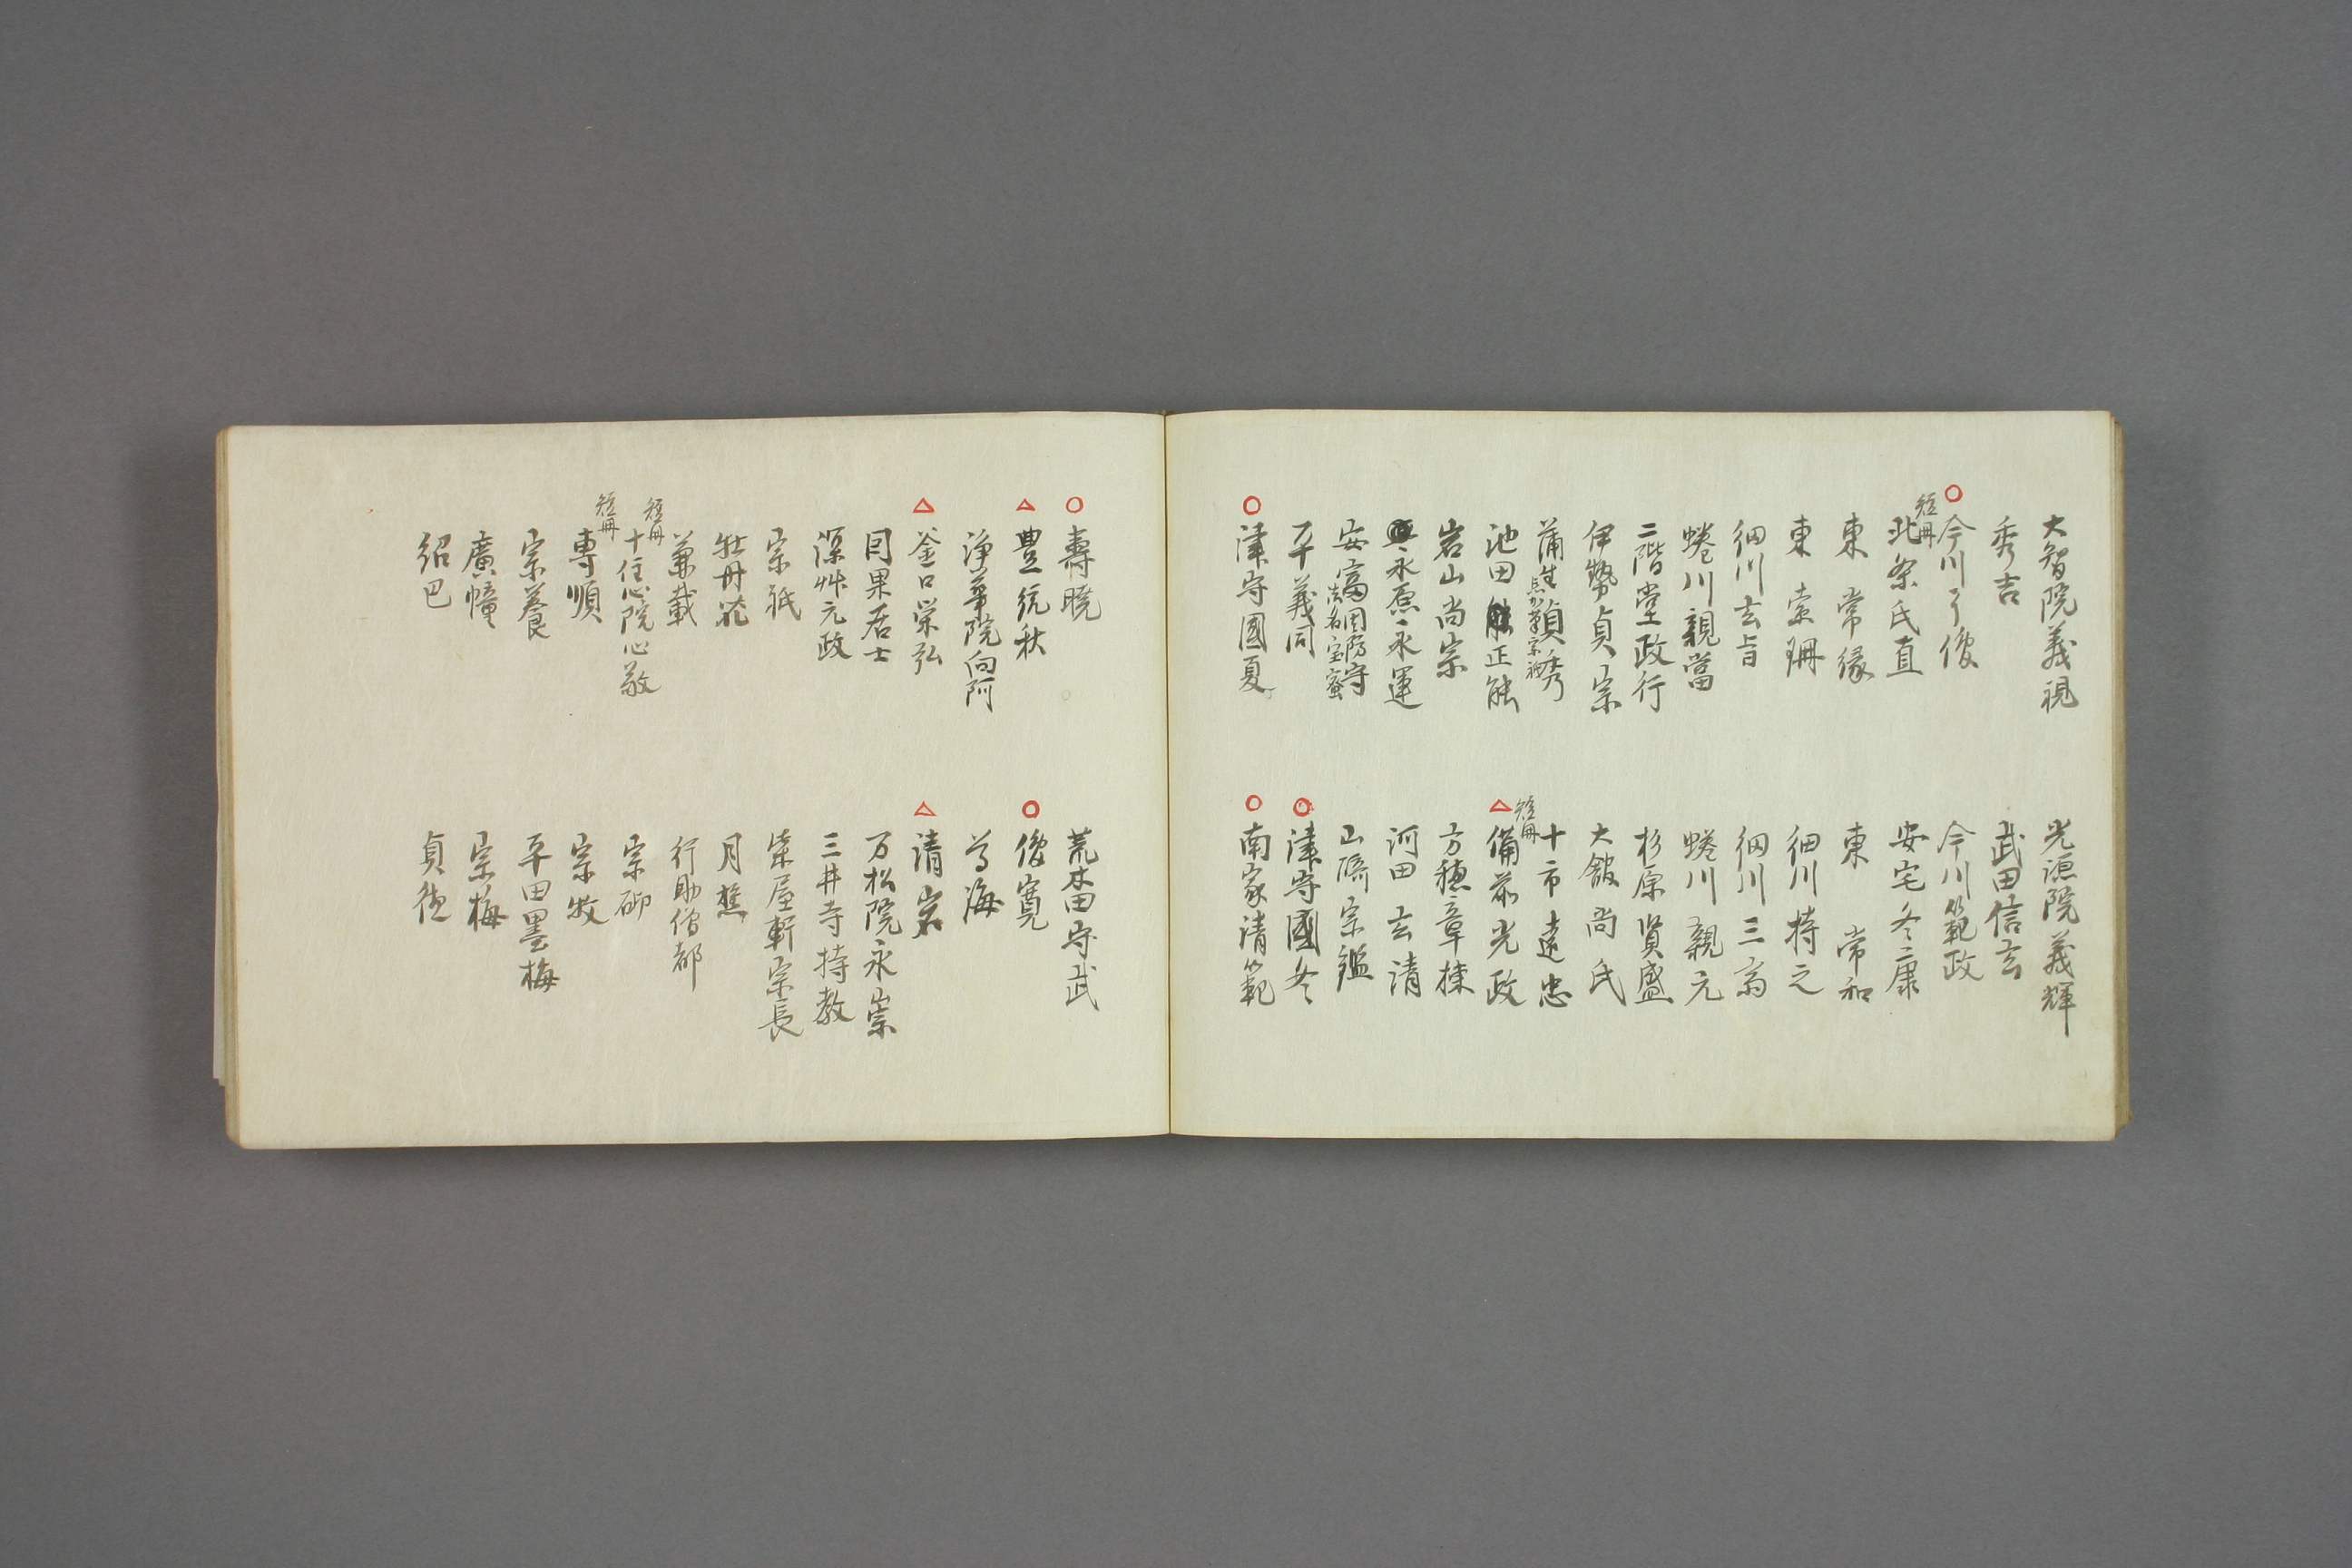 大智院義視
秀吉
○今川了俊
短冊
北条氏直
東常縁
東素珊
細川玄旨
蜷川親當
二階堂政行
伊勢貞宗
蒲生貞秀
池田正能
岩山尚宗
永原永運
安富因防守
法名宝蜜
平義同
○津守國夏
光源院義輝
武田信玄
今川範政
安宅冬康
東常和
細川持之
細川三斎
蜷川親元
杉原賢盛
大舘尚氏
十市遠忠
短冊
△備前光政
方穂章棟
河田玄清
山﨑宗鑑
○津守國冬
○南家清範
○壽暁
△豊統秋
浄華院向阿
△釜口栄弘
因果居士
深艸元政
宗祇
牡丹花
兼載
短冊
十住心院心敬
短冊
専順
宗養
廣幢
紹巴
荒木田守武
○俊寛
尊海
△清岩
万松院永崇
三井寺持教
柴屋軒宗長
月樵
行助僧都
宗砌
宗牧
平田墨梅
宗梅
貞徳